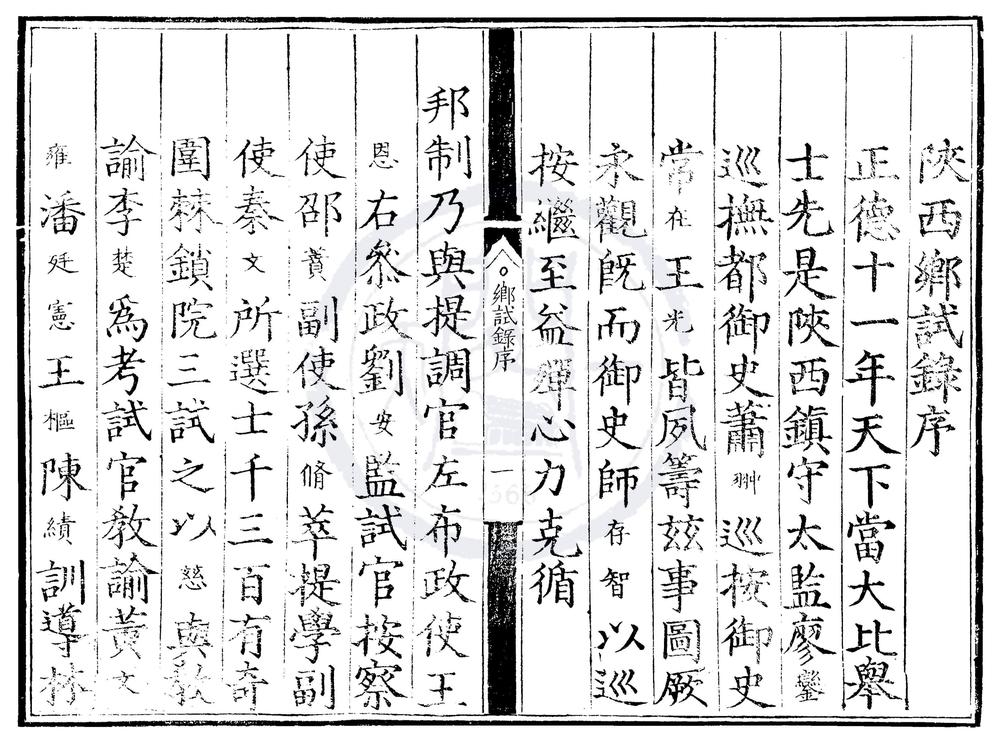 陝西鄉試錄序
正德十一年天下當大比舉
士先是陝西鎮守太監廖鑾
巡撫都御史蕭翀巡按御史
常在王光皆夙籌玆事圖厥
永觀旣而御史師存智以巡
按繼至益殫心力克循
鄉試錄序
一
邦制乃與提調官左布政使王
恩右叅政劉安監試官按察
使邵蕡副使孫脩萃提學副
使秦文所選士千三百有奇
圍棘鎖院三試之以慈與敎
諭李楚爲考試官敎諭黃文
雍潘廷憲王樞陳績訓導林